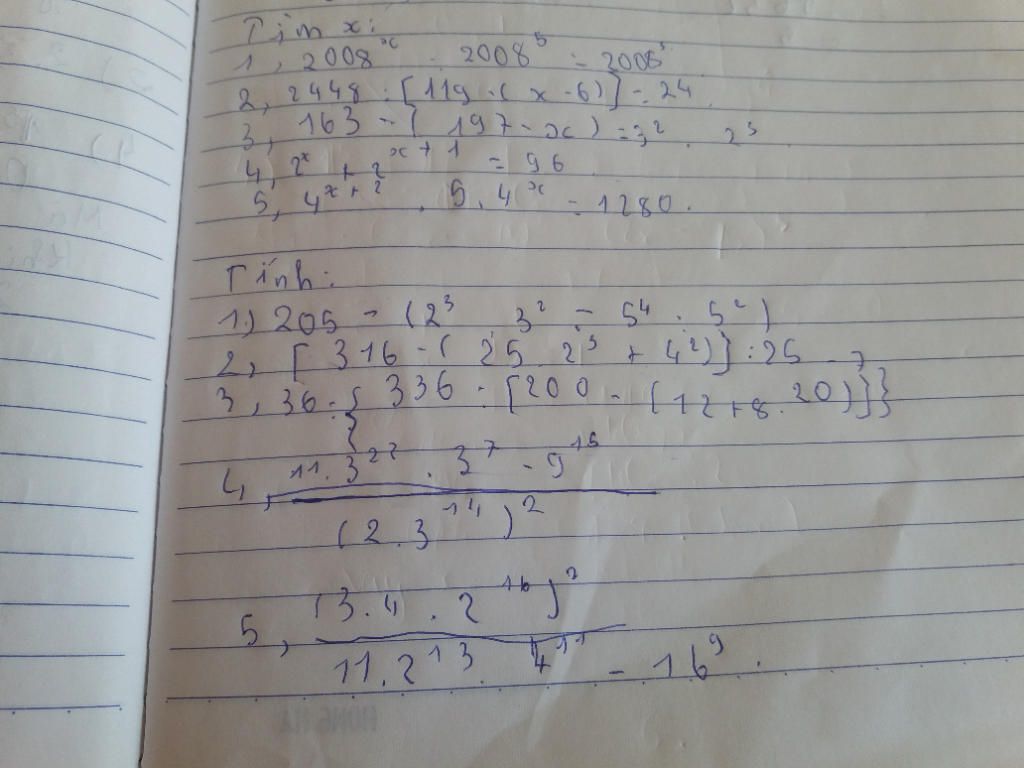 Tìm x:
1, 2008^x . 2008^5 = 2008^5
2, 2448 : [119 - ( x - 6)] = 24.
3, 163 - ( 197 - x ) = 3^2 . 2^3
4, 2^x + 2^{x+1} = 96
5, 4^{x+2} . 5. 4^x = 1280.
Tính:
1,) 205 - (2^3 3^2 - 5^4 : 5^2)
2, [ 316 - ( 25 2^3 + 4^2)] : 25
3, 36 : { 336 : [200 - (12 + 8. 20)]}
4, \frac{11. 3^{22} . 3^7 - 9^{15}}{(2 . 3^{14})^2}
5, \frac{(3. 4 . 2^{16})^2}{11. 2^{13}. 4^{11} - 16^9} .